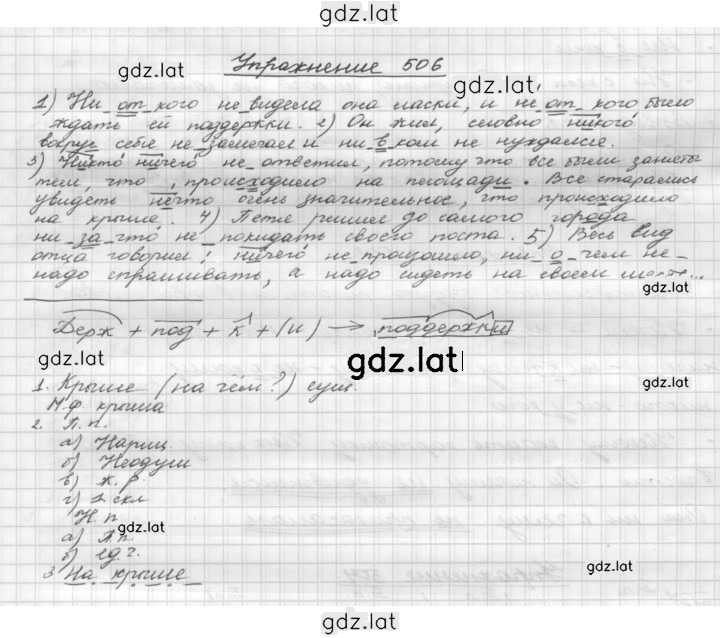 gdz.lat
Упражнение 506
gdz.lat
gdz.lat
1) Ни от кого не видела она ласки, и не от кого было
ждать ей поддержки. 2) Он жил, словно никого
вокруг себе не замечал и ни в ком не нуждался.
3) Никто ничего не ответил, потому что все были заняты
тем, что происходило на площади. Все старались
увидеть нечто очень значительное, что происходило
на крыше. 4) Петя решил до самого города
ни за что не покидать своего поста. 5) Весь вид
отца говорил: ничего не произошло, ни о чем не-
надо спрашивать, а надо сидеть на своем месте...
gdz.lat
Держ + под + к + (и) → поддержки
gdz.lat
gdz.lat
gdz.lat
1. Крыше (на чём?) сущ.
Н.ф. крыша
2. П.п.
а) Нариц.
б) Неодуш
в) ж.р.
г) 1 скл
Н.п.
gdz.lat
а) П.п.
б) ед.ч.
gdz.lat
3 На крыше
gdz.lat
gdz.lat